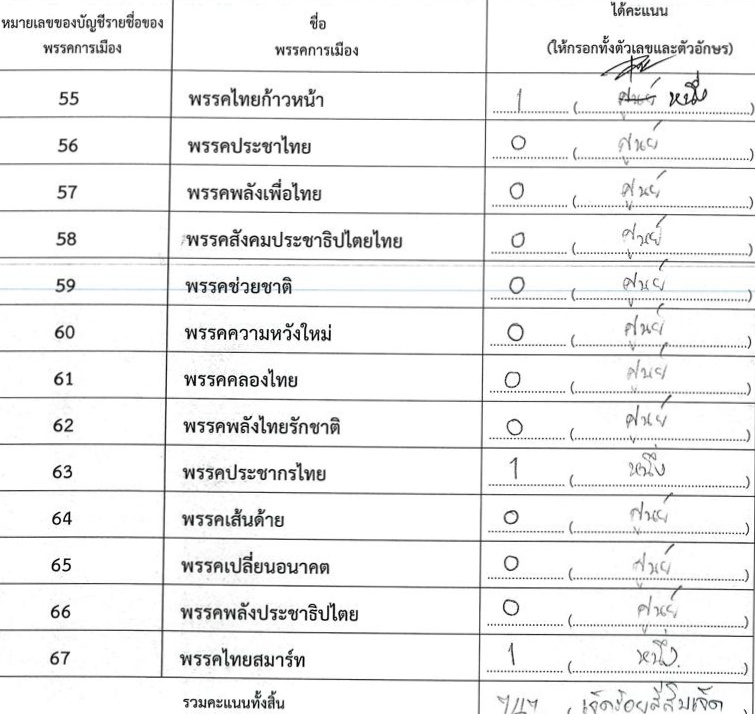 หมายเลขของบัญชีรายชื่อของ พรรคการเมือง ชื่อ พรรคการเมือง ได้คะแนน (ให้กรอกทั้งตัวเลขและตัวอักษร)
55 พรรคไทยก้าวหน้า 1 (ศูนย์ หนึ่ง)
56 พรรคประชาไทย 0 (ศูนย์)
57 พรรคพลังเพื่อไทย 0 (ศูนย์)
58 พรรคสังคมประชาธิปไตยไทย 0 (ศูนย์)
59 พรรคช่วยชาติ 0 (ศูนย์)
60 พรรคความหวังใหม่ 0 (ศูนย์)
61 พรรคคลองไทย 0 (ศูนย์)
62 พรรคพลังไทยรักชาติ 0 (ศูนย์)
63 พรรคประชากรไทย 1 (หนึ่ง)
64 พรรคเส้นด้าย 0 (ศูนย์)
65 พรรคเปลี่ยนอนาคต 0 (ศูนย์)
66 พรรคพลังประชาธิปไตย 0 (ศูนย์)
67 พรรคไทยสมาร์ท 1 (หนึ่ง)
รวมคะแนนทั้งสิ้น 747 (เจ็ดร้อยสี่สิบเจ็ด